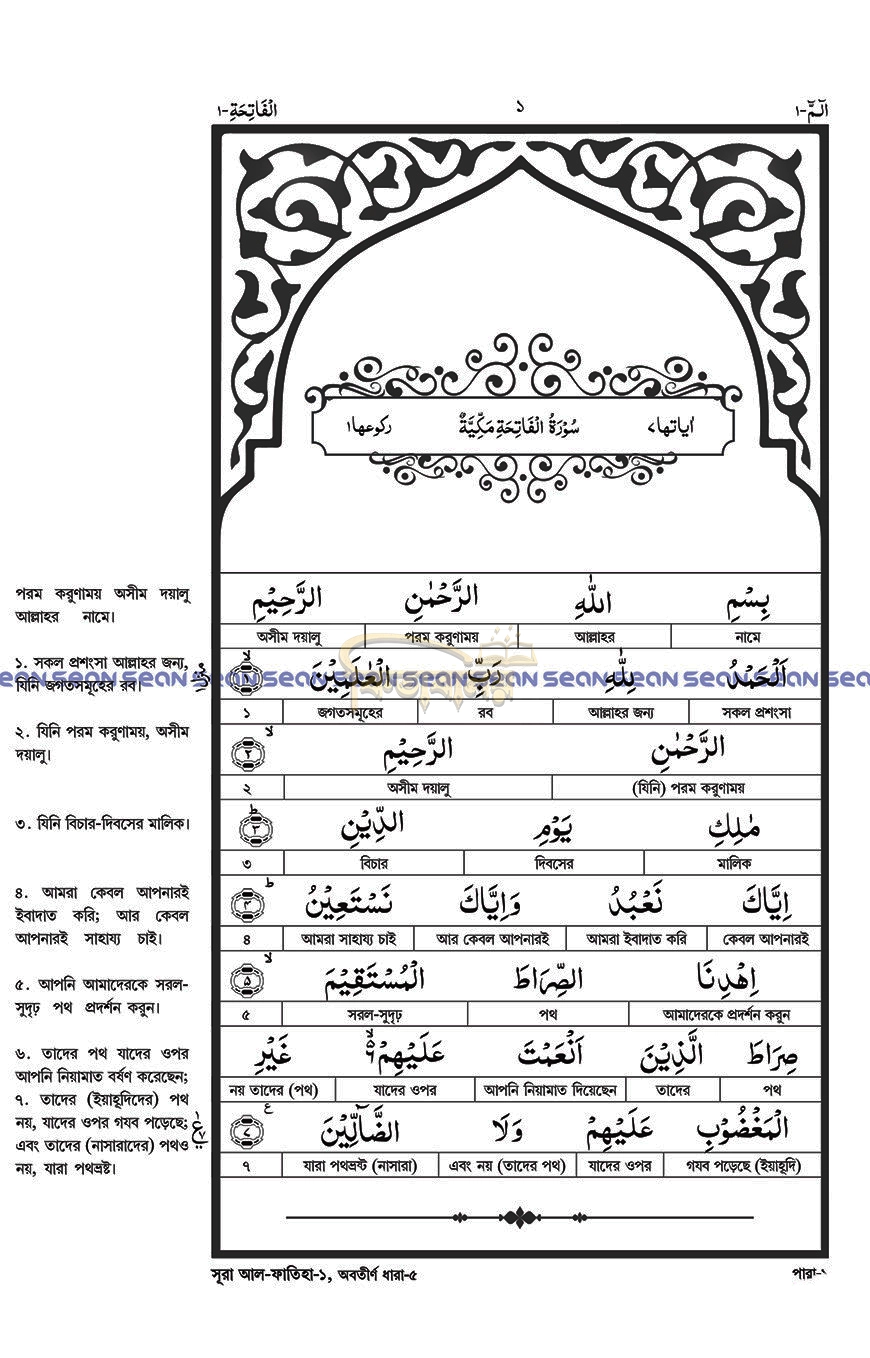 الٓمّٓ-١
١
اَلْفَاتِحَةِ-١
اٰياتها٧ سُوْرَةُ الْفَاتِحَةِ مَكِّيَّةٌ ركوعها١
بِسْمِ اللهِ الرَّحْمٰنِ الرَّحِيْمِ
নামে আল্লাহর পরম করুণাময় অসীম দয়ালু
اَلْحَمْدُ لِلّٰهِ رَبِّ الْعٰلَمِيْنَ ١
সকল প্রশংসা আল্লাহর জন্য রব জগতসমূহের ১
الرَّحْمٰنِ الرَّحِيْمِ ٢
(যিনি) পরম করুণাময় অসীম দয়ালু ২
مٰلِكِ يَوْمِ الدِّيْنِ ٣
মালিক দিবসের বিচার ৩
اِيَّاكَ نَعْبُدُ وَاِيَّاكَ نَسْتَعِيْنُ ٤
কেবল আপনারই আমরা ইবাদাত করি আর কেবল আপনারই আমরা সাহায্য চাই ৪
اِهْدِنَا الصِّرَاطَ الْمُسْتَقِيْمَ ٥
আমাদেরকে প্রদর্শন করুন পথ সরল-সুদৃঢ় ৫
صِرَاطَ الَّذِيْنَ اَنْعَمْتَ عَلَيْهِمْ ٦ غَيْرِ
পথ তাদের আপনি নিয়ামাত দিয়েছেন যাদের ওপর নয় তাদের (পথ)
الْمَغْضُوْبِ عَلَيْهِمْ وَلَا الضَّآلِّيْنَ ٧
গযব পড়েছে (ইয়াহূদি) যাদের ওপর এবং নয় (তাদের পথ) যারা পথভ্রষ্ট (নাসারা) ৭
পরম করুণাময় অসীম দয়ালু
আল্লাহর নামে।
১. সকল প্রশংসা আল্লাহর জন্য,
যিনি জগতসমূহের রব।
২. যিনি পরম করুণাময়, অসীম
দয়ালু।
৩. যিনি বিচার-দিবসের মালিক।
৪. আমরা কেবল আপনারই
ইবাদাত করি; আর কেবল
আপনারই সাহায্য চাই।
৫. আপনি আমাদেরকে সরল-
সুদৃঢ় পথ প্রদর্শন করুন।
৬. তাদের পথ যাদের ওপর
আপনি নিয়ামাত বর্ষণ করেছেন;
৭. তাদের (ইয়াহূদিদের) পথ
নয়, যাদের ওপর গযব পড়েছে;
এবং তাদের (নাসারাদের) পথও
নয়, যারা পথভ্রষ্ট।
sean sean sean sean sean sean sean
সূরা আল-ফাতিহা-১, অবতীর্ণ ধারা-৫
পারা-১